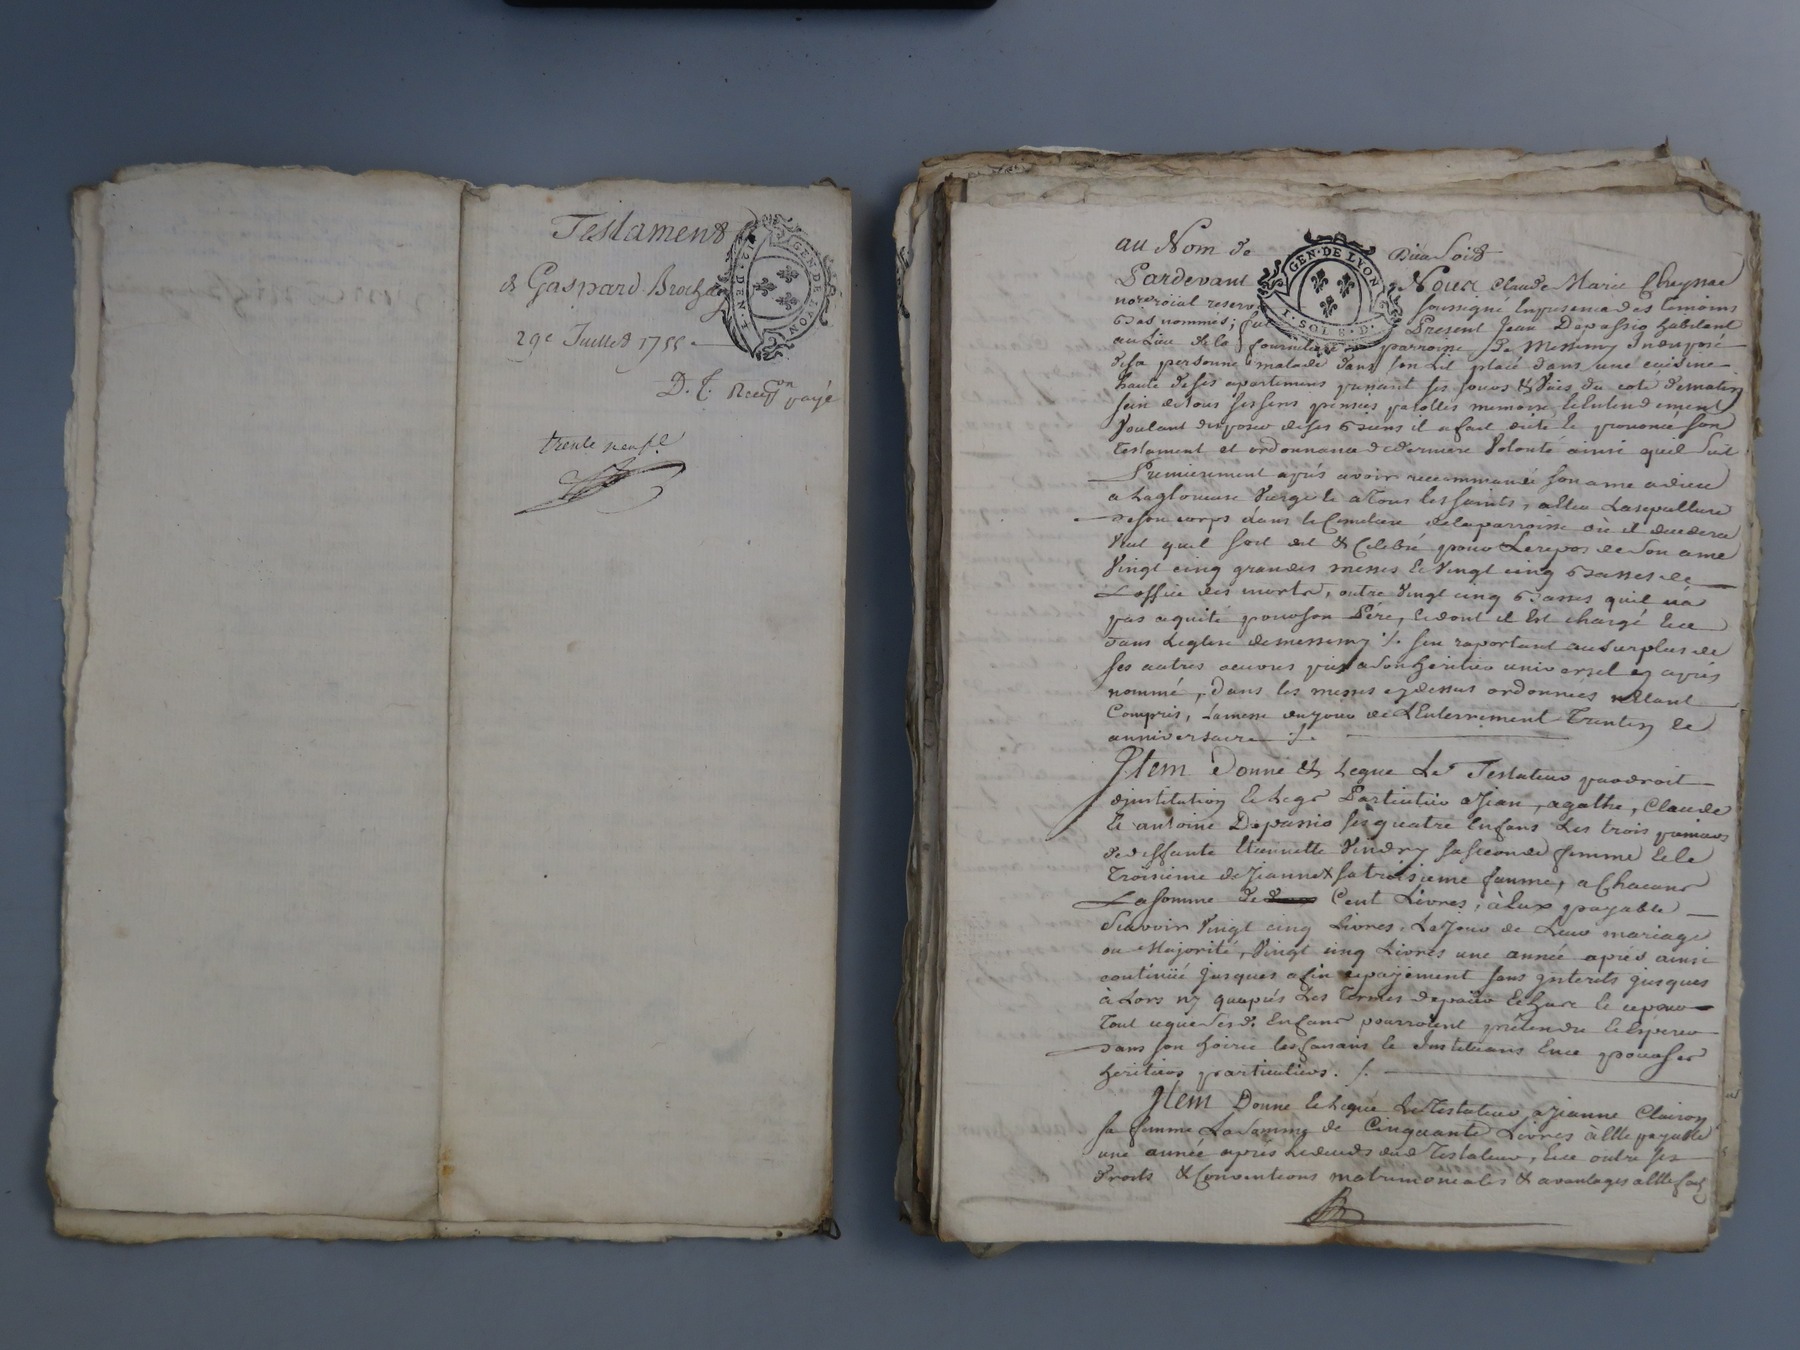 Testament
de Gaspard Brochay
29e Juillet 1755
D. T. Recepon payé
trente neuf
GEN. DE LYON
au Nom de Dieu Soit
GEN. DE LYON
1. SOL. 8. D.
Pardevant Nous Claude Marie Cheyssac
no.re roial reservé soussigné En presence des temoins
Bas nommés; fut Present Jean Depassio habitant
au Lieu de la fourniliere parroisse de Messimy Indisposé
de sa personne & malade dans son Lit placé dans une cuisine
haute de ses apartemens prenant ses jours & Vües du coté de matin
sain de tous ses sens pensées parolles memoire & Entendement
Voulant disposer de ses Biens il a fait dicté & prononcé son
testament et ordonnance de derniere Volonté ainsi quil suit
Premierement aprés avoir recommandé son ame a dieu
a La glorieuse Vierge & a Tous les saints, a élu La sepulture
de son corps dans le Cimetiere de la parroisse où il decedera
Veut quil soit dit & Celebré pour Le repos de son ame
Vingt cinq grandes messes & Vingt cinq Basses de
L'office des morts, outre Vingt cinq Basses quil n'a
pas aquité pour son Pére, & dont il Est chargé & ce
dans Leglise de messimy ./. s'en raportant au surplus de
ses autres oeuvres pies a son heritier universel cy aprés
nommé, dans les messes cy dessus ordonnées n'étant
Compris, La messe du jour de L'Enterrement Trentin &
anniversaire ./.
Item Donne & Legue Le Testateur par droit
d'institution & Legs Particulier a Jean, agathe, Claude
& antoine Depassio ses quatre Enfans Les trois premiers
de deffunte Etiennette Vindry sa seconde femme & le
Troisieme de Jeanne sa troisieme femme, a Chacuns
La somme de Cent Livres, à Eux payable
Scavoir Vingt cinq Livres Le jour de Leur mariage
ou Majorité, Vingt cinq Livres une année aprés ainsi
continüé jusques a fin de payement sans interets jusques
à Lors ny quaprés Les Termes de paier Echus & ce pour
Tout ce que Sesd. Enfans pourroient prétendre & Espérer
dans son hoirie les faisant & Instituans En ce pour ses
heritiers particuliers. ./.
Item Donne & Legue Le Testateur a Jeanne Clairon
sa femme La somme de Cinquante Livres à Elle payable
une année aprés Le deceds dud Testateur, & ce outre ses
Droits & Conventions matrimoniales & avantages a Elle fait